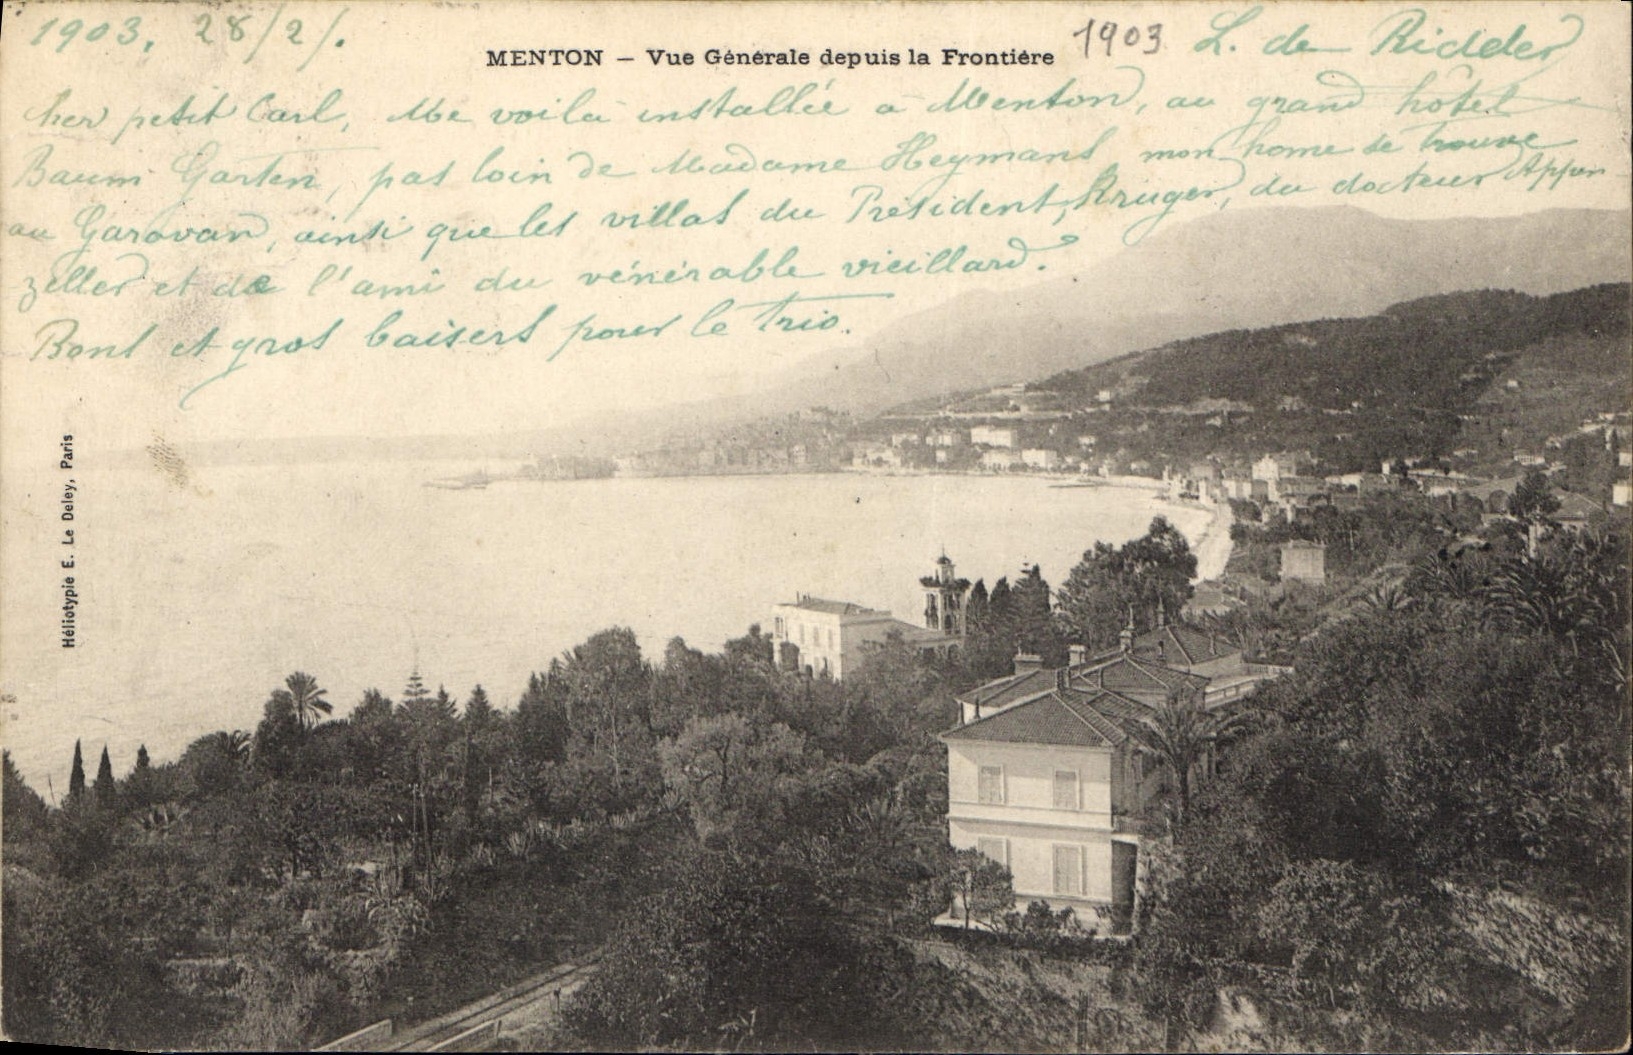 1903, 28/2/.
MENTON — Vue Générale depuis la Frontière
1903
L. de Ridder
her petit Carl, Me voilà installée à Menton, au grand hôtel
Baum Garten, pas loin de Madame Heymans, mon home se trouve
au Garavan, ainsi que les villas du Président Kruger, du docteur Appen
zeller et de l'ami du vénérable vieillard.
Bons et gros baisers pour le trio.
Héliotypie E. Le Deley, Paris